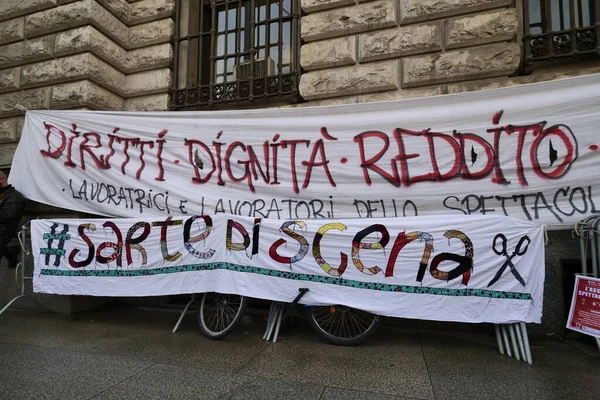 DIRITTI · DIGNITÀ · REDDITO ·
· LAVORATRICI E LAVORATORI DELLO SPETTACOLO
#SARTE DI SCENA